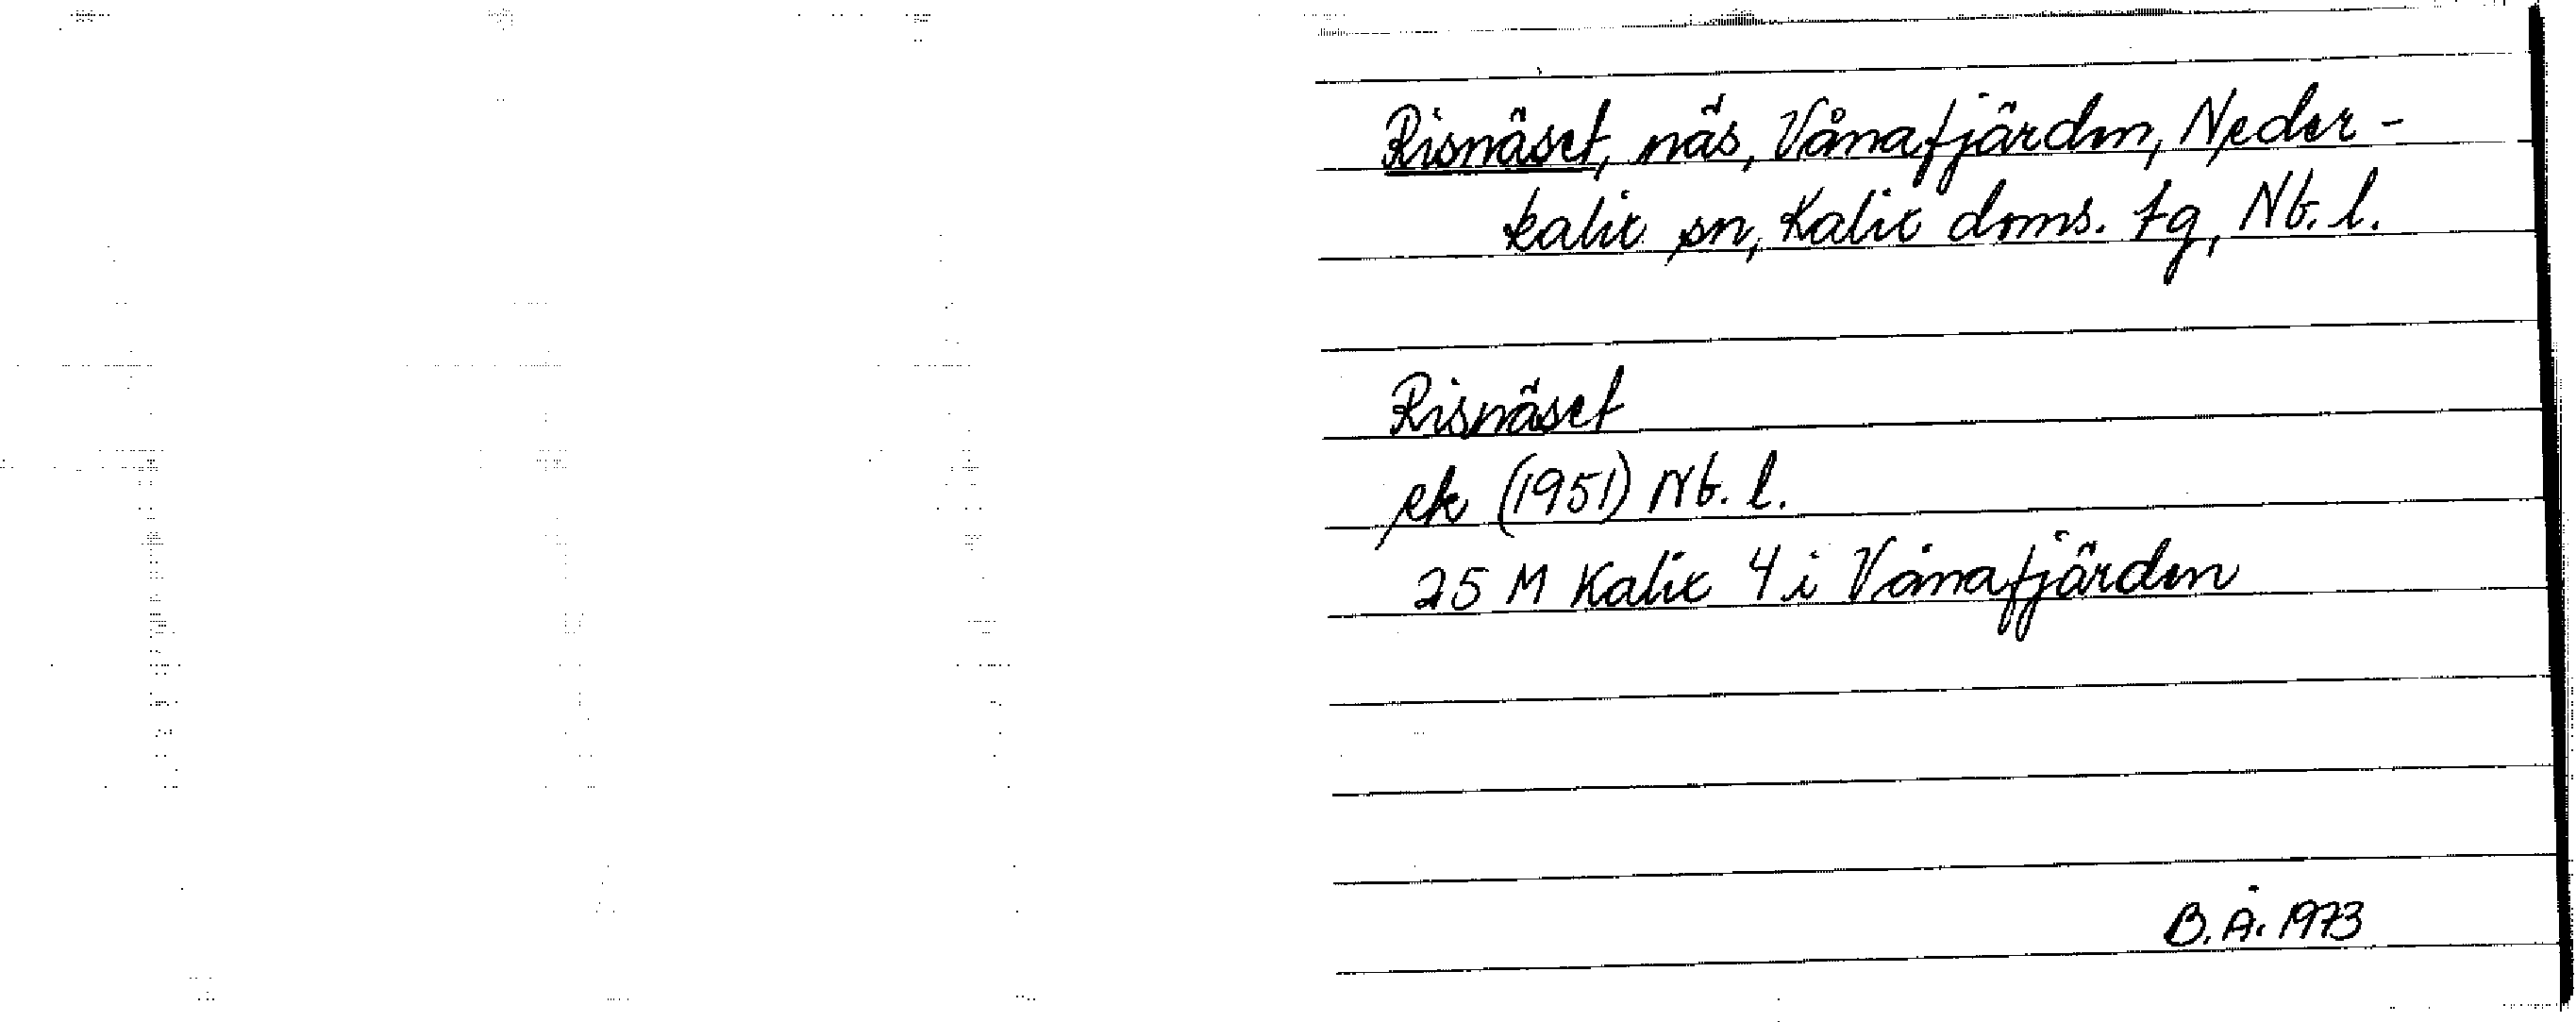 Risnäset, näs, Vånafjärden, Neder-
kalix sn, Kalix doms. tg, Nb. l.
Risnäset
ek (1951) Nb. l.
25 M Kalix 4 i Vånafjärden
B. Å. 1973